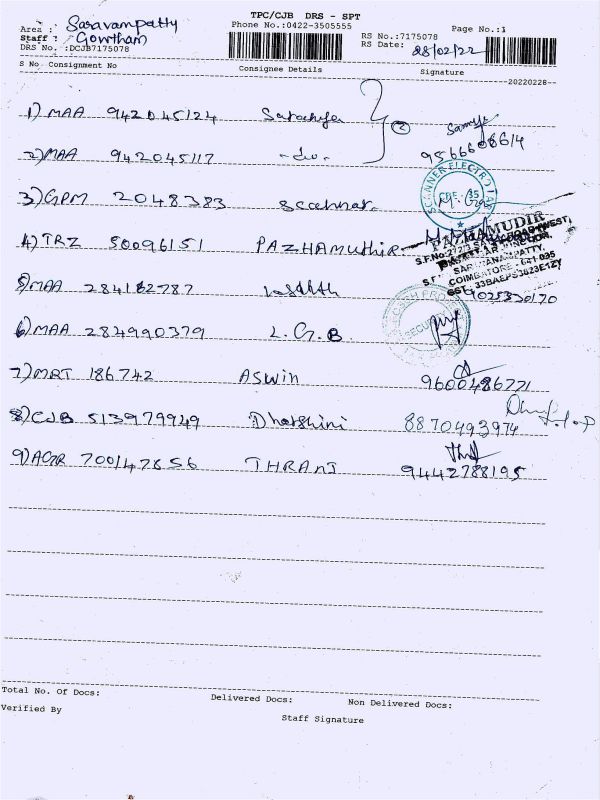 TPC/CJB DRS - SPT
Area : Saravampatty
Phone No.:0422-3505555
Page No.:1
Staff : Gowtham
RS No.:7175078
DRS No. :DCJB7175078
RS Date: 28/02/22
S No Consignment No Consignee Details Signature
20220228
1) MAA 942045124
2) MAA 942045117 -do-
9566608614
3) GPM 2048383 Scanner
SCANNER ELECTRO
4) TRZ 50096151 PAZHAMUTHIR
PAZHAMUDIR
SARAVANAMPATTY,
COIMBATORE - 641 035
GST : 33BAEPS3823E1ZY
5) MAA 284182787
9025330170
SECURITY
6) MAA 284990379 L.G.B
7) MRT 186742 ASWIN 9600486771
8) CJB 513979949 Dharshini 8870493974
9) AGR 700147856 THRANI 9442788195
Total No. Of Docs: Delivered Docs: Non Delivered Docs:
Verified By
Staff Signature